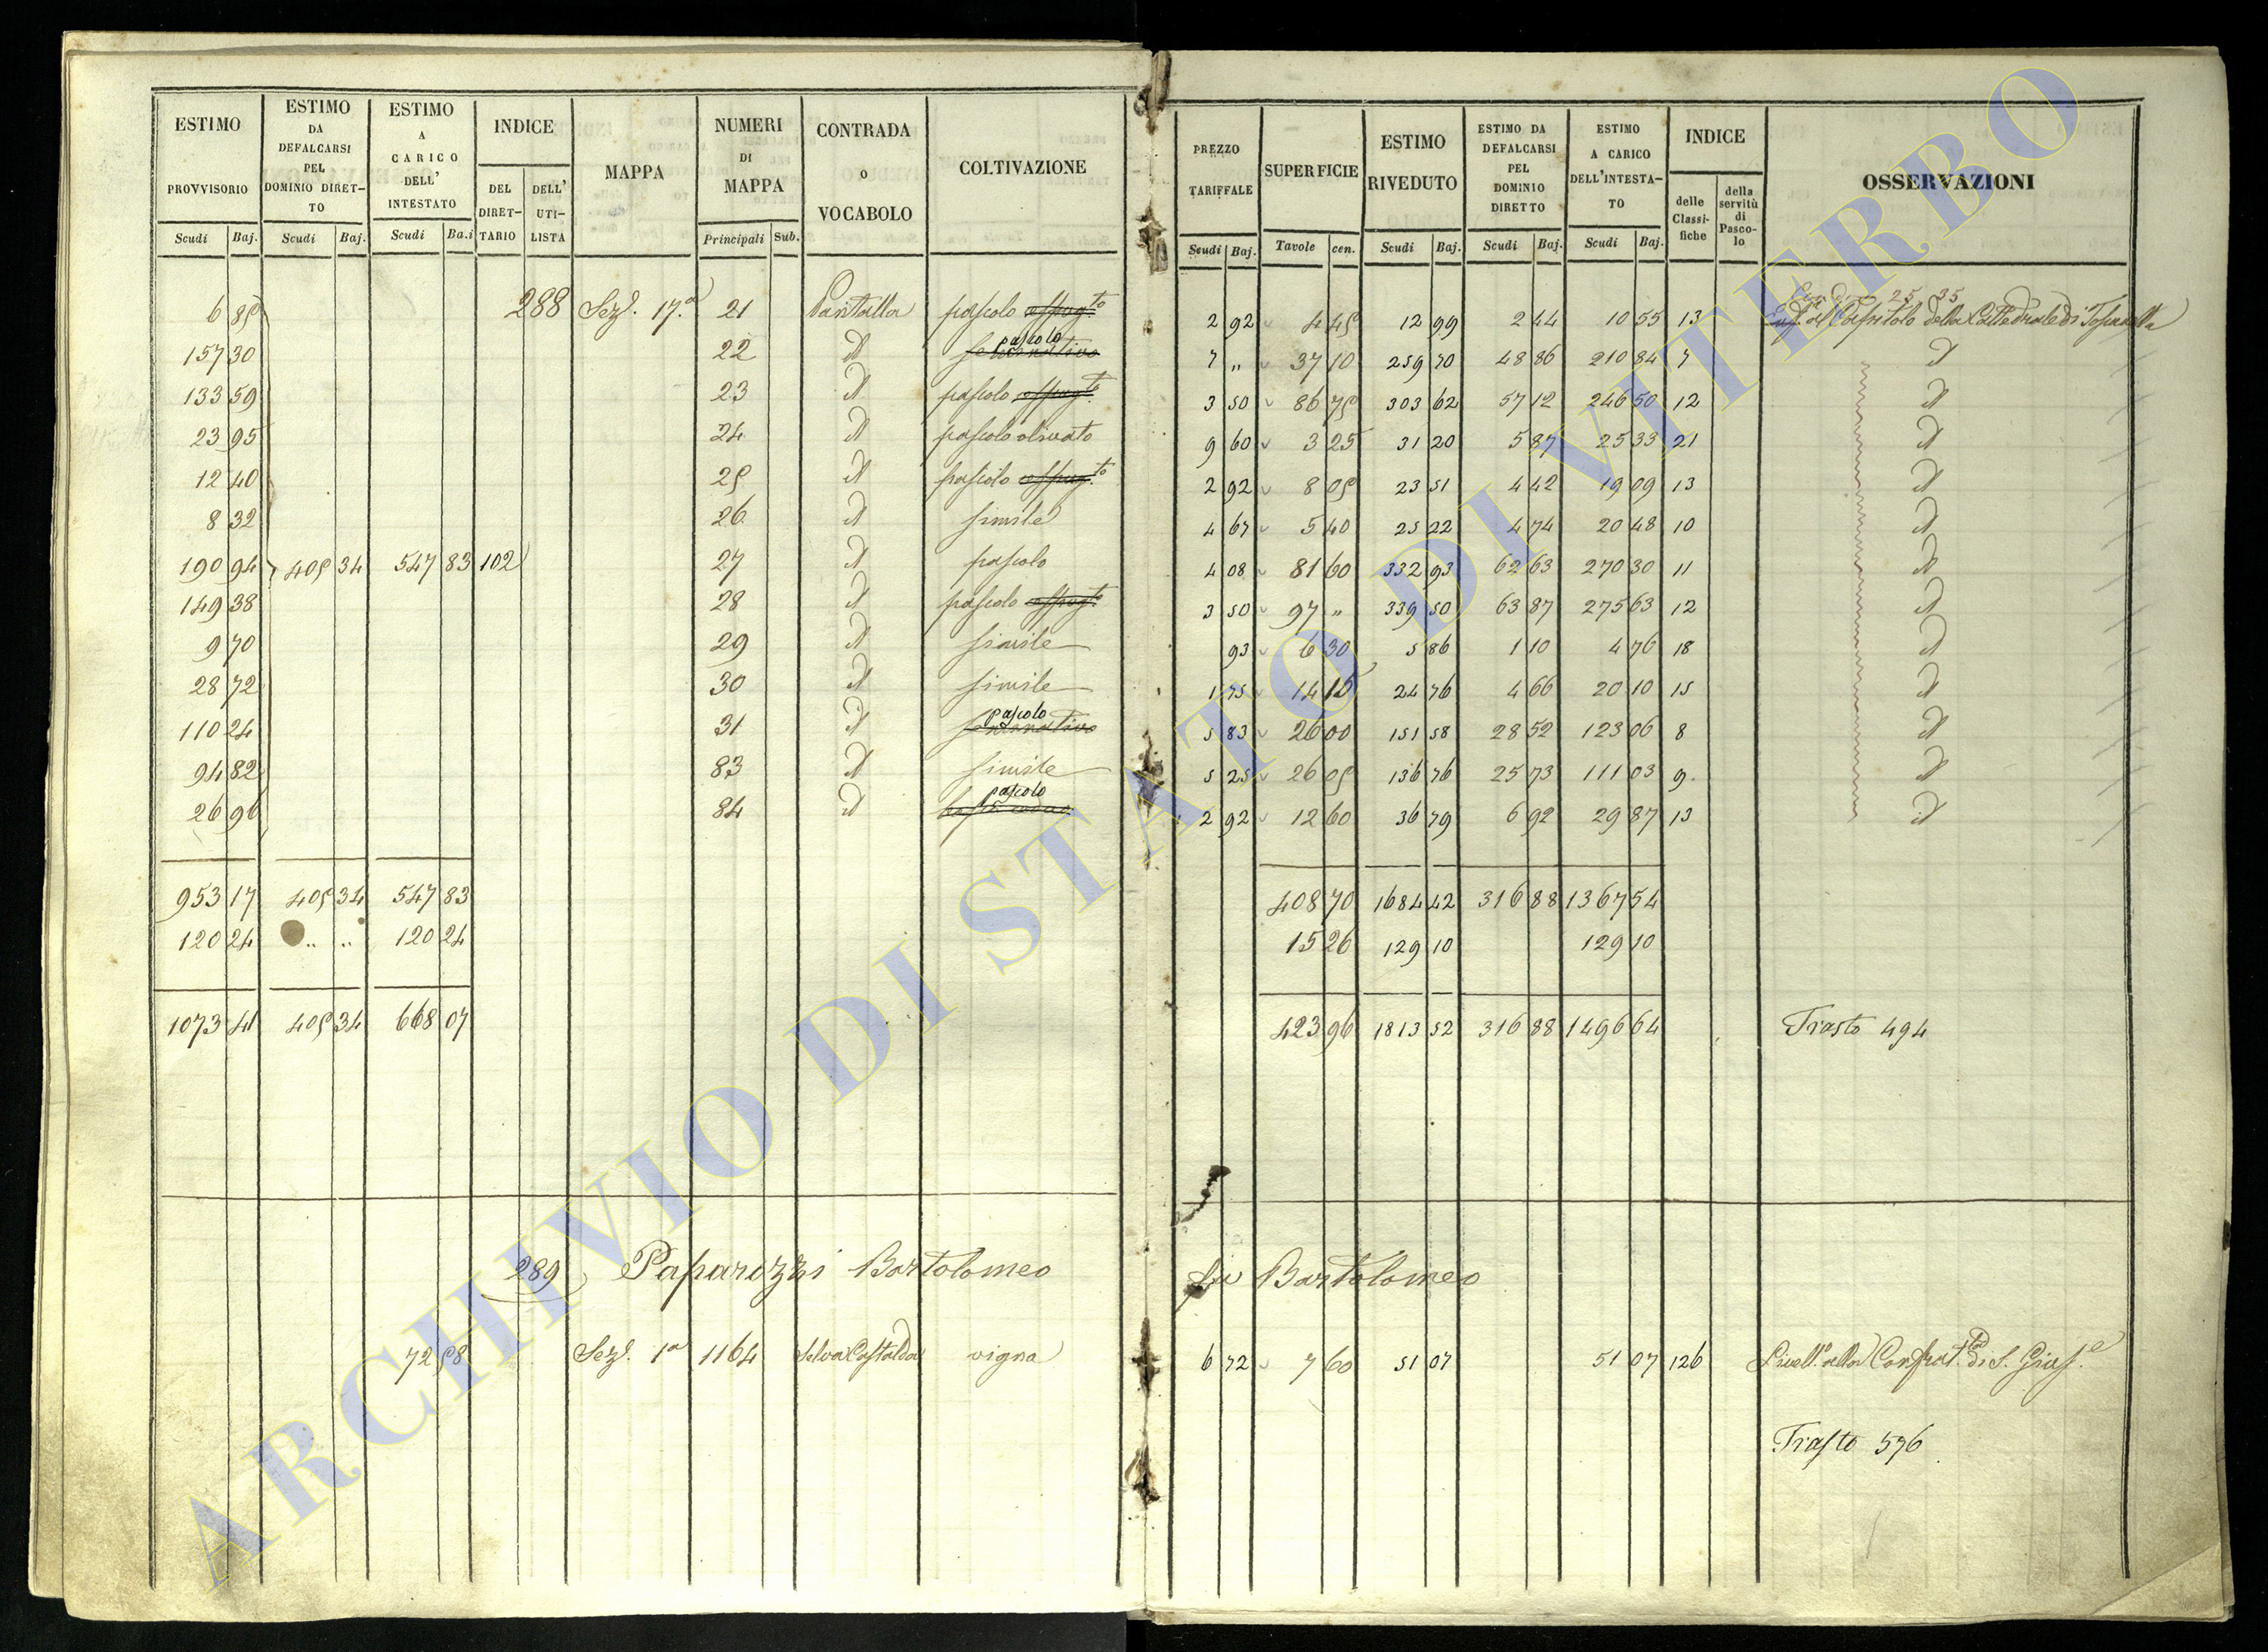 ESTIMO PROVVISORIO Scudi Baj. | ESTIMO DA DEFALCARSI PEL DOMINIO DIRET-TO Scudi Baj. | ESTIMO A CARICO DELL' INTESTATO Scudi Ba.i | INDICE DEL DIRET-TARIO DELL' UTI-LISTA | MAPPA | NUMERI DI MAPPA Principali Sub. | CONTRADA O VOCABOLO | COLTIVAZIONE | PREZZO TARIFFALE Scudi Baj. | SUPERFICIE Tavole cen. | ESTIMO RIVEDUTO Scudi Baj. | ESTIMO DA DEFALCARSI PEL DOMINIO DIRETTO Scudi Baj. | ESTIMO A CARICO DELL'INTESTA-TO Scudi Baj. | INDICE delle Classi-fiche della servitù di Pasco-lo | OSSERVAZIONI
25 35
6 85 288 Sez.e 17.a 21 Pantalla pascolo 2 92 4 45 12 99 2 44 10 55 13 Enf. al Capitolo della Cattedrale di Toscanella
157 30 22 d pascolo 7 „ 37 10 259 70 48 86 210 84 7 d
133 59 23 d pascolo 3 50 86 75 303 62 57 12 246 50 12 d
23 95 24 d pascolo olivato 9 60 3 25 31 20 5 87 25 33 21 d
12 40 25 d pascolo 2 92 8 05 23 51 4 42 19 09 13 d
8 32 26 d simile 4 67 5 40 25 22 4 74 20 48 10 d
190 94 405 34 547 83 102 27 d pascolo 4 08 81 60 332 93 62 63 270 30 11 d
149 38 28 d pascolo 3 50 97 „ 339 50 63 87 275 63 12 d
9 70 29 d simile 93 6 30 5 86 1 10 4 76 18 d
28 72 30 d simile 1 75 14 15 24 76 4 66 20 10 15 d
110 24 31 d pascolo 5 83 26 00 151 58 28 52 123 06 8 d
94 82 83 d simile 5 25 26 05 136 76 25 73 111 03 9. d
26 96 84 d pascolo 2 92 12 60 36 79 6 92 29 87 13 d
953 17 405 34 547 83 408 70 1684 42 316 88 1367 54
120 24 „ „ 120 24 15 26 129 10 129 10
1073 41 405 34 668 07 423 96 1813 52 316 88 1496 64 Trasto 494
289 Paparozzi Bartolomeo fu Bartolomeo
72 58 Sez.e 1a 1164 Selva Castalda vigna 6 72 7 60 51 07 51 07 126 Livell.o alla Confrat.ta di S. Gius.e
Trasto 576
ARCHIVIO DI STATO DI VITERBO